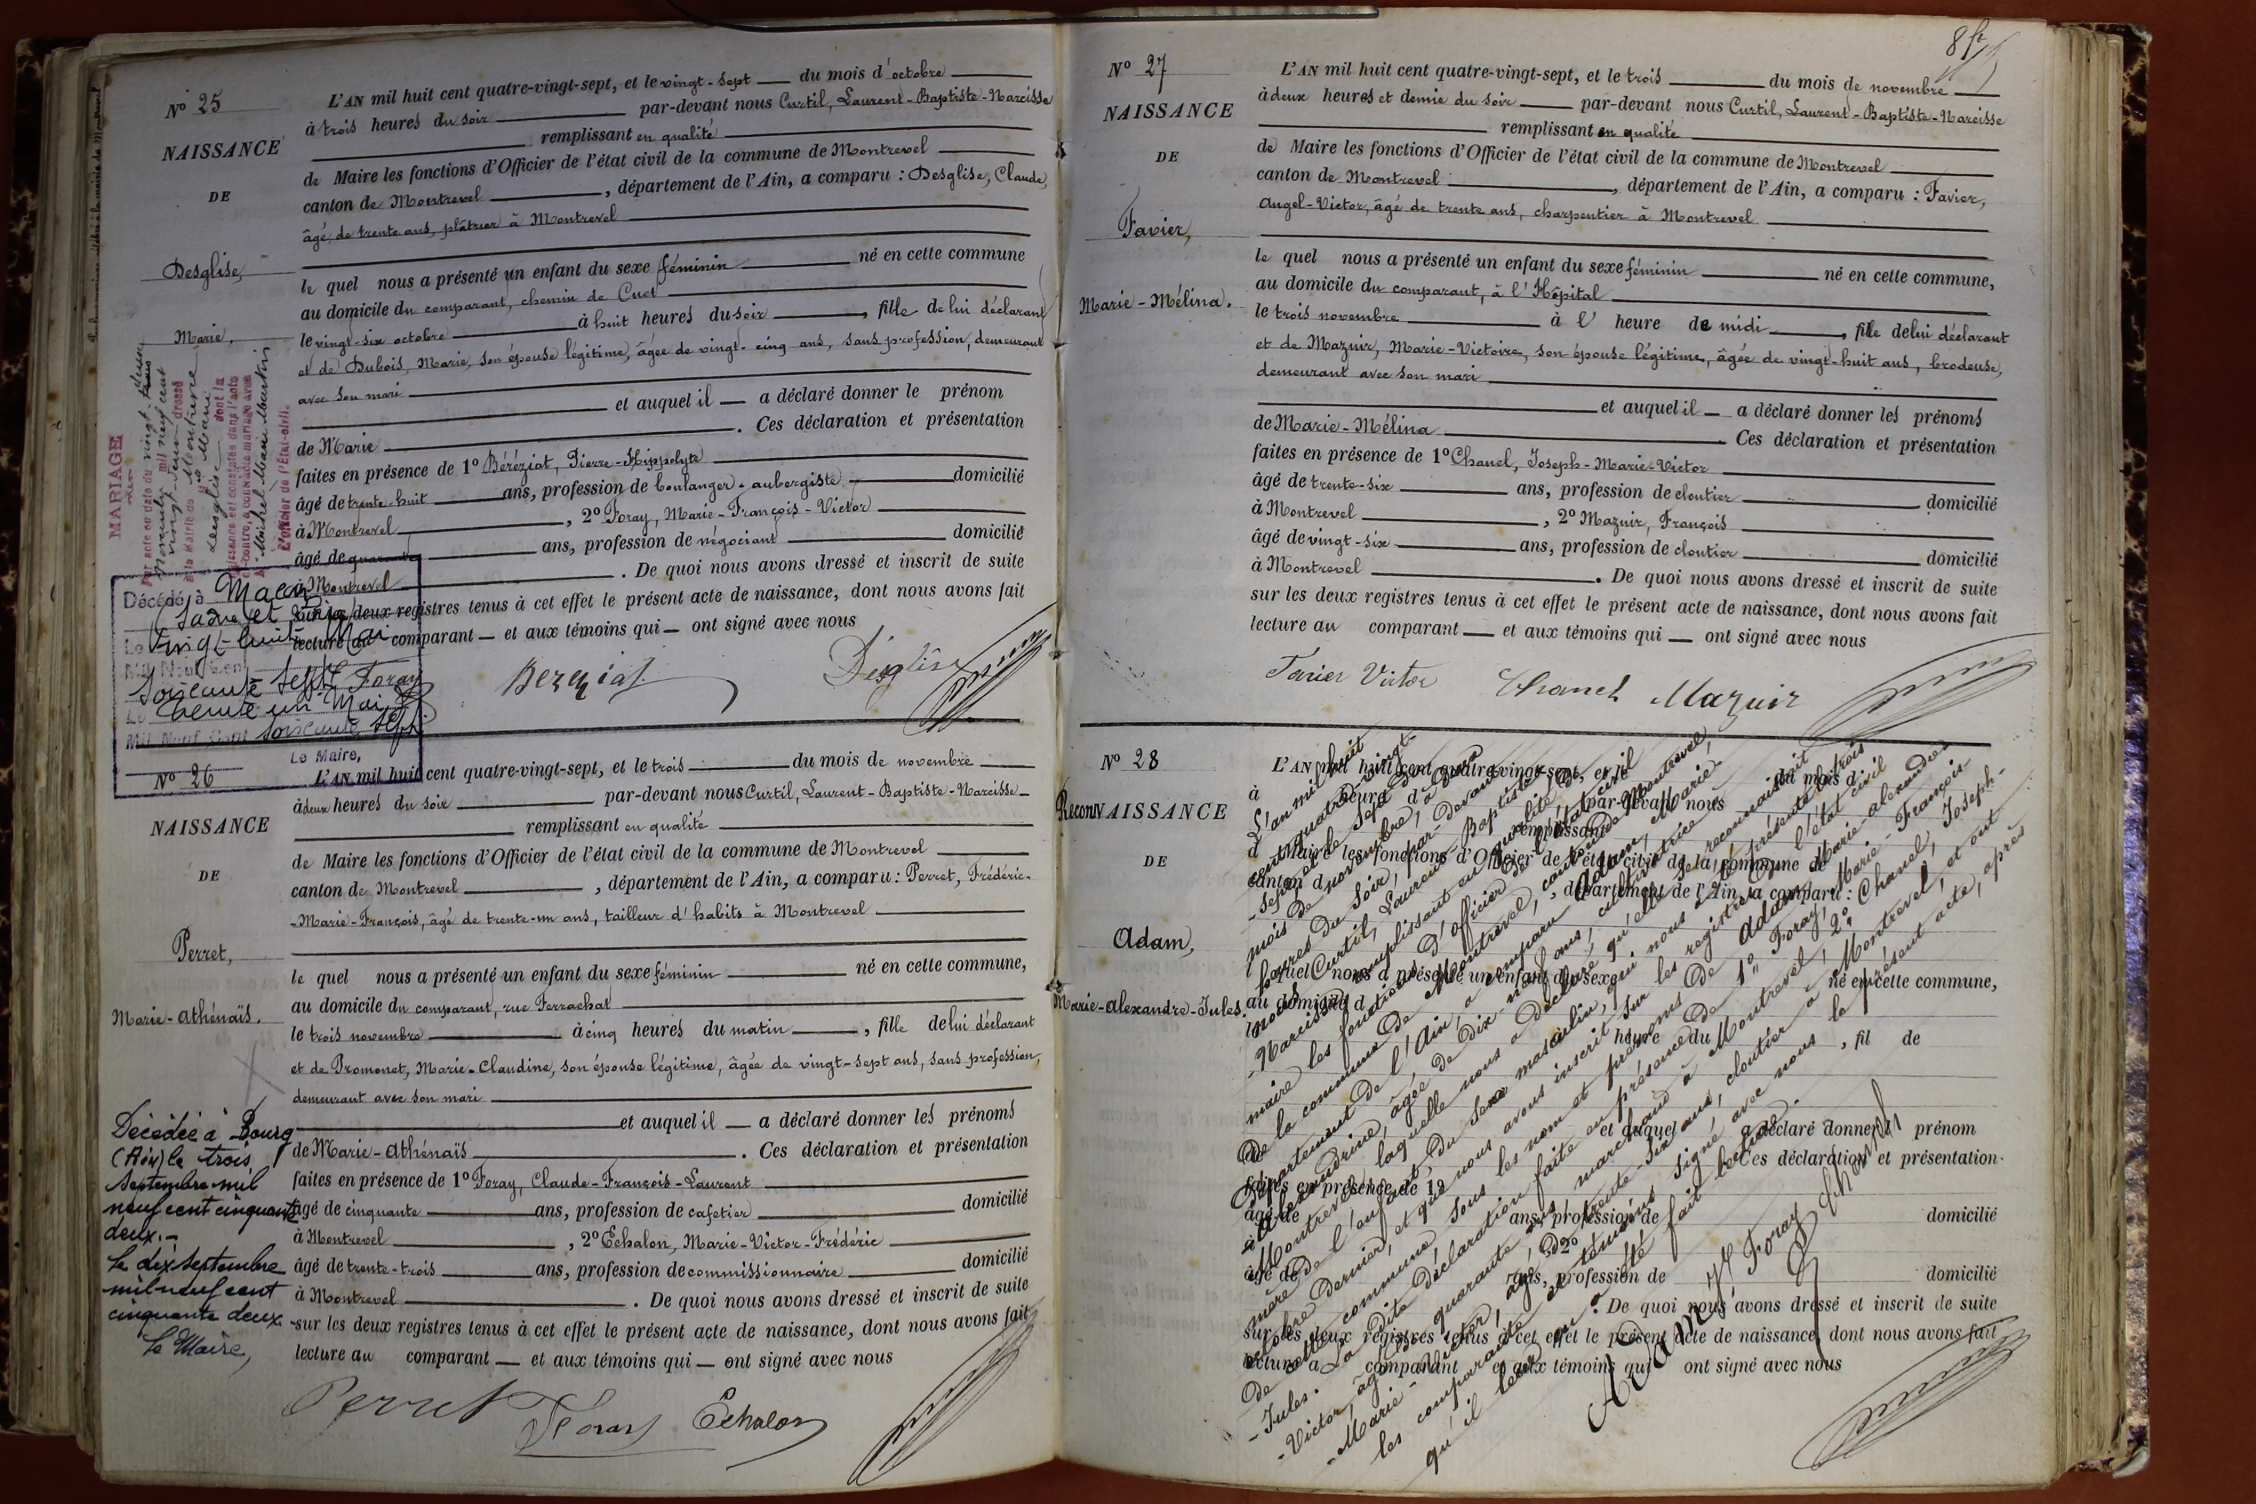 N° 25
NAISSANCE
DE
Desglise,
Marie,
L'AN mil huit cent quatre-vingt-sept, et le vingt-sept du mois d'octobre
à trois heures du soir par-devant nous Curtil, Laurent-Baptiste-Narcisse
remplissant en qualité
de Maire les fonctions d'Officier de l'état civil de la commune de Montrevel
canton de Montrevel, département de l'Ain, a comparu : Desglise, Claude,
âgé de trente ans, plâtrier à Montrevel
le quel nous a présenté un enfant du sexe féminin né en cette commune
au domicile du comparant, chemin de Cuet
le vingt-six octobre à huit heures du soir, fille de lui déclarant
et de Dubois, Marie, son épouse légitime, âgée de vingt-cinq ans, sans profession, demeurant
avec son mari
et auquel il a déclaré donner le prénom
de Marie. Ces déclaration et présentation
faites en présence de 1° Béréziat, Pierre-Hippolyte
âgé de trente-huit ans, profession de boulanger-aubergiste domicilié
à Montrevel, 2° Foray, Marie-François-Victor
âgé de quarante ans, profession de négociant domicilié
à Montrevel. De quoi nous avons dressé et inscrit de suite
sur les deux registres tenus à cet effet le présent acte de naissance, dont nous avons fait
lecture au comparant et aux témoins qui ont signé avec nous
Foray Bereziat Déglise
MARIAGE
Par acte en date du vingt-
novembre mil neuf cent
vingt-deux dressé
à la Mairie de Montrevel
Desglise Marie dont la
naissance est constatée dans l'acte
ci-contre, a contracté mariage avec
Michel Marie Martin
L'Officier de l'État-civil.
Décédé à Macon
Saône et Loire
Le vingt-huit Mai
Mil Neuf Cent
soixante-sept
Le trente un Mai
Mil Neuf Cent soixante sept
Le Maire,
N° 26
NAISSANCE
DE
Perret,
Marie-Athénaïs.
L'AN mil huit cent quatre-vingt-sept, et le trois du mois de novembre
à deux heures du soir par-devant nous Curtil, Laurent-Baptiste-Narcisse
remplissant en qualité
de Maire les fonctions d'Officier de l'état civil de la commune de Montrevel
canton de Montrevel, département de l'Ain, a comparu : Perret, Frédéric-
-Marie-François, âgé de trente-un ans, tailleur d'habits à Montrevel
le quel nous a présenté un enfant du sexe féminin né en cette commune,
au domicile du comparant, rue Ferrachat
le trois novembre à cinq heures du matin, fille de lui déclarant
et de Promonet, Marie-Claudine, son épouse légitime, âgée de vingt-sept ans, sans profession,
demeurant avec son mari
et auquel il a déclaré donner les prénoms
de Marie-Athénaïs. Ces déclaration et présentation
faites en présence de 1° Foray, Claude-François-Laurent
âgé de cinquante ans, profession de cafetier domicilié
à Montrevel, 2° Echalon, Marie-Victor-Frédéric
âgé de trente-trois ans, profession de commissionnaire domicilié
à Montrevel. De quoi nous avons dressé et inscrit de suite
sur les deux registres tenus à cet effet le présent acte de naissance, dont nous avons fait
lecture au comparant et aux témoins qui ont signé avec nous
Perret Foray Echalon
Décédée à Bourg
(Ain) le trois
Septembre mil
neuf cent cinquante
deux.-
Le dix Septembre
mil neuf cent
cinquante deux
Le Maire,
N° 27
NAISSANCE
DE
Favier,
Marie-Mélina.
L'AN mil huit cent quatre-vingt-sept, et le trois du mois de novembre
à deux heures et demie du soir par-devant nous Curtil, Laurent-Baptiste-Narcisse
remplissant en qualité
de Maire les fonctions d'Officier de l'état civil de la commune de Montrevel
canton de Montrevel, département de l'Ain, a comparu : Favier,
Angel-Victor, âgé de trente ans, charpentier à Montrevel
le quel nous a présenté un enfant du sexe féminin né en cette commune,
au domicile du comparant, à l'Hôpital
le trois novembre à l' heure de midi, fille de lui déclarant
et de Mazuir, Marie-Victoire, son épouse légitime, âgée de vingt-huit ans, brodeuse,
demeurant avec son mari
et auquel il a déclaré donner les prénoms
de Marie-Mélina. Ces déclaration et présentation
faites en présence de 1° Chanel, Joseph-Marie-Victor
âgé de trente-six ans, profession de cloutier domicilié
à Montrevel, 2° Mazuir, François
âgé de vingt-six ans, profession de cloutier domicilié
à Montrevel. De quoi nous avons dressé et inscrit de suite
sur les deux registres tenus à cet effet le présent acte de naissance, dont nous avons fait
lecture au comparant et aux témoins qui ont signé avec nous
Favier Victor Chanel Mazuir
N° 28
ReconNAISSANCE
DE
Adam,
Marie-Alexandre-Jules.
L'an mil huit
cent quatre-vingt-
-sept et le sept du
mois de novembre, à deux
heures du soir, par-devant
nous Curtil, Laurent-Baptiste-
-Narcisse remplissant en qualité de
maire les fonctions d'officier de l'état civil
de la commune de Montrevel, canton de Montrevel,
département de l'Ain, a comparu Adam, Marie-
Alexandrine, âgée de dix-neuf ans, cultivatrice à
Montrevel, laquelle nous a déclaré qu'elle se reconnaissait
mère de l'enfant du sexe masculin, qui nous a été présenté le trois
octobre dernier, et que nous avons inscrit sur les registres de l'état civil
de cette commune sous les nom et prénoms de Adam, Marie-Alexandre-
-Jules. La dite déclaration faite en présence de 1° Foray, Marie-François-
-Victor, âgé de quarante ans, marchand à Montrevel, 2° Chanel, Joseph-
-Marie-Victor, âgé de trente-six ans, cloutier à Montrevel, et ont
les comparante et témoins signé avec nous le présent acte, après
qu'il leur en a été fait lecture.
Adam Foray Chanel